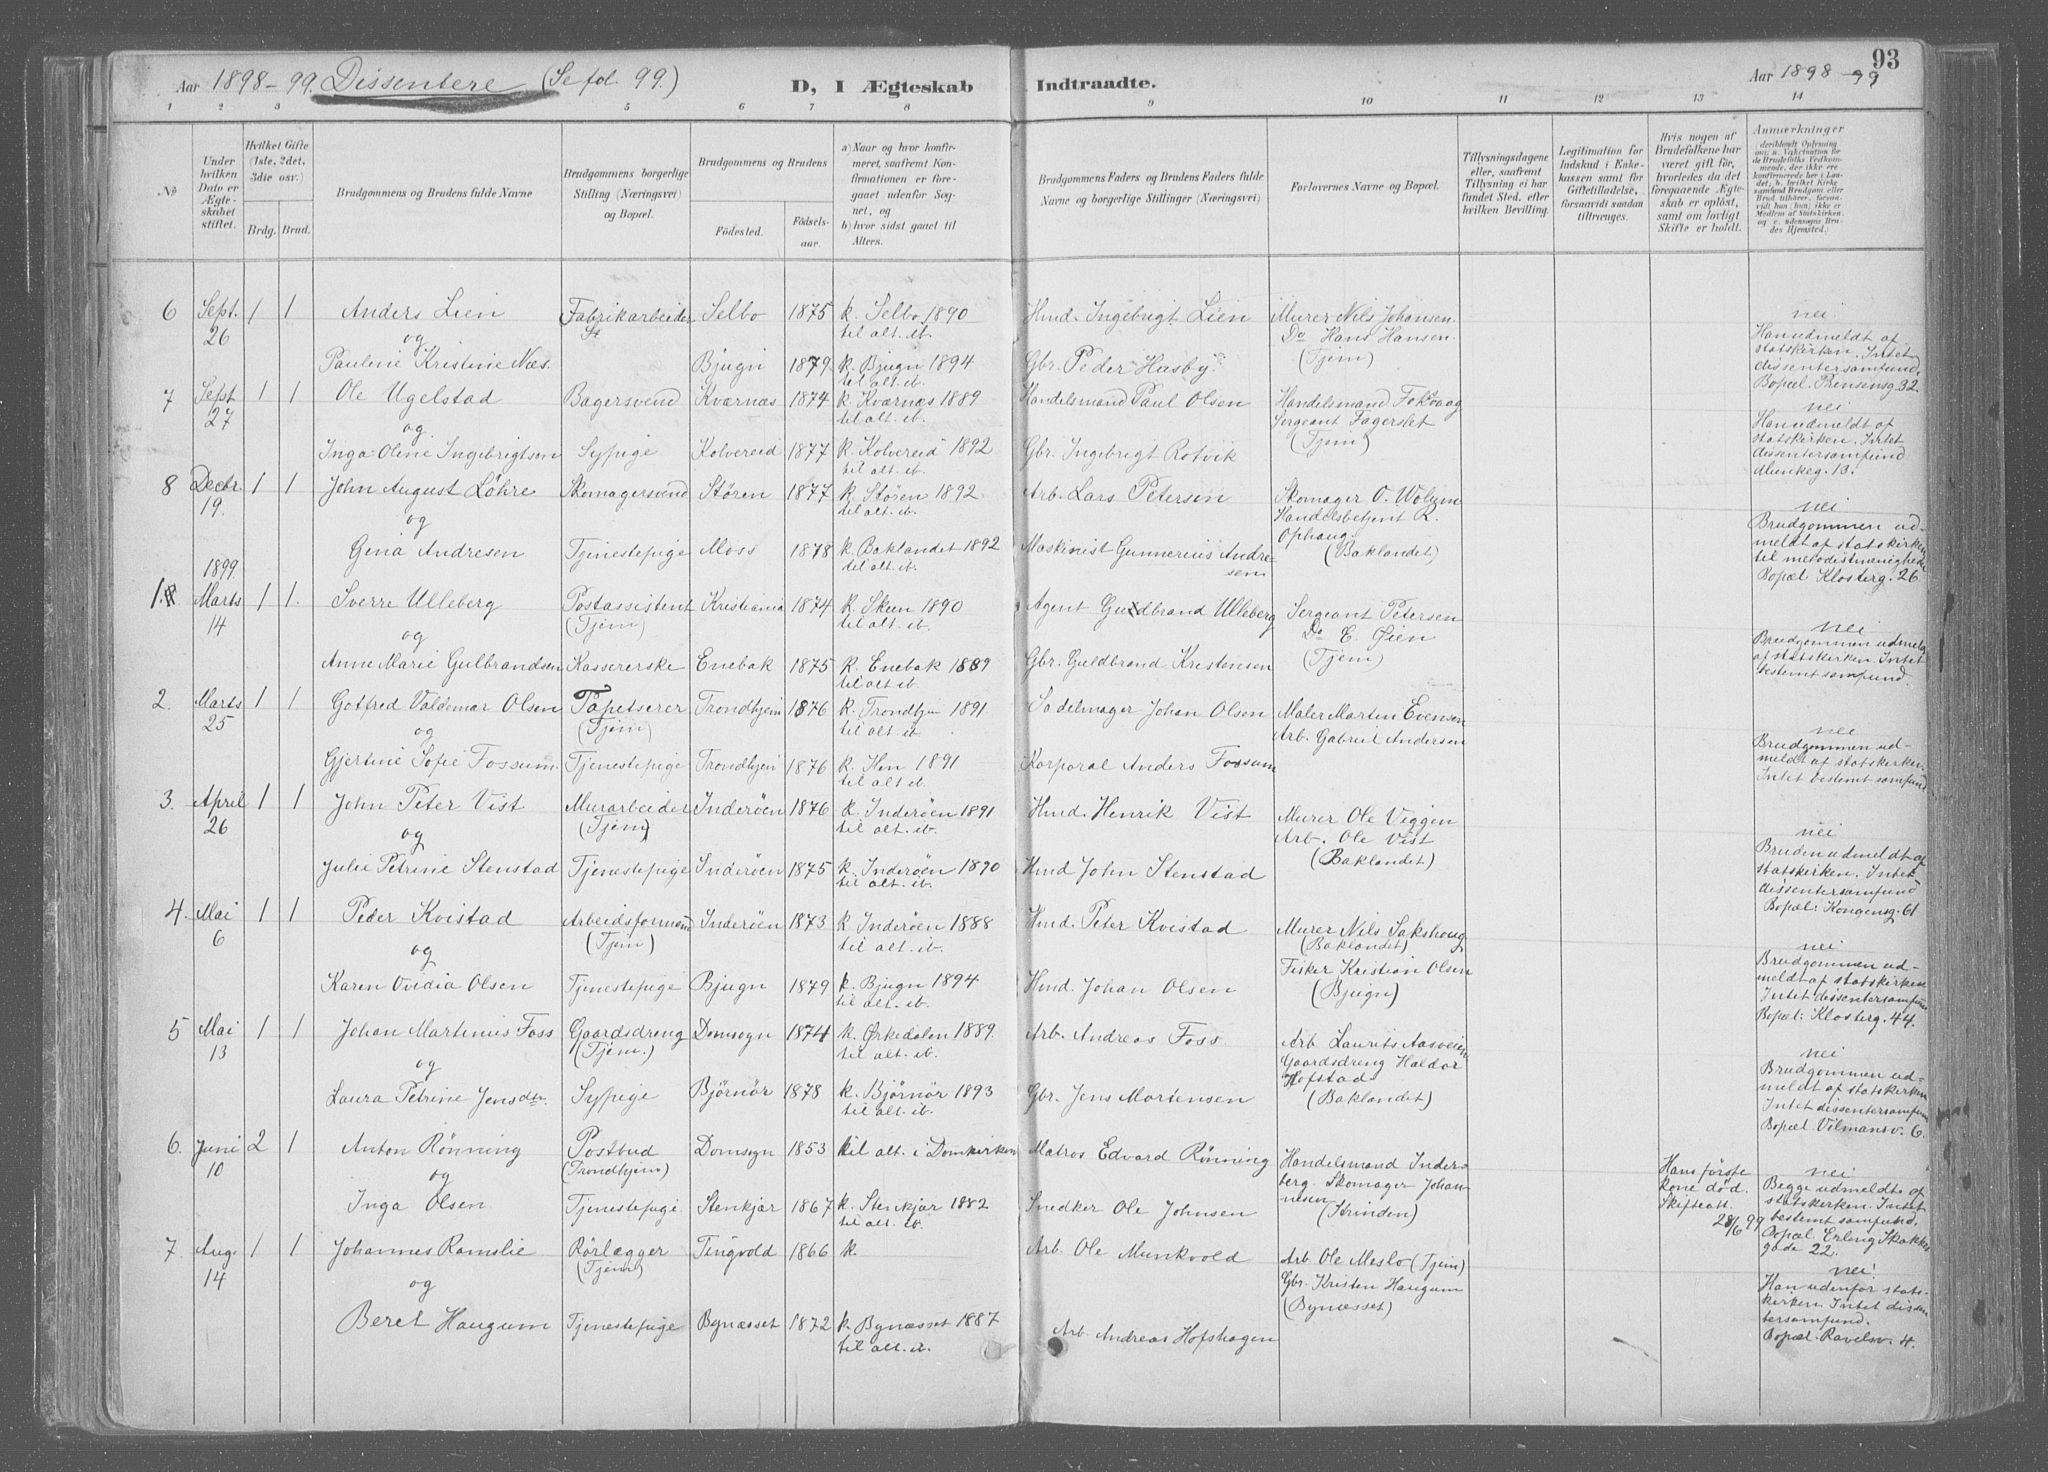 Aar 1898-99. Dissentere (Se fol. 99.) D, I Ægteskab
Indtraadte. Aar 1898-99 93
1 2 3 5 6 7 8 9 10 11 12 13 14
No
Under hvilken Dato er Ægteskabet stiftet.
Hvilket Gifte (1ste, 2det, 3die osv.)
Brdg. Brud.
Brudgommens og Brudens fulde Navne
Brudgommens borgerlige Stilling (Næringsvei) og Bopæl.
Brudgommens og Brudens
Födested. Födselsaar.
a) Naar og hvor konfirmeret, saafremt Konfirmationen er foregaaet udenfor Sognet, og
b) hvor sidst gaaet til Alters.
Brudgommens Faders og Brudens Faders fulde Navne og borgerlige Stillinger (Næringsvei)
Forlovernes Navne og Bopæl.
Tillysningsdagene eller, saafremt Tillysning ei har fundet Sted, efter hvilken Bevilling.
Legitimation for Indskud i Enkekassen samt for Giftetilladelse, forsaavidt saadan tiltrænges.
Hvis nogen af Brudefolkene har været gift för, hvorledes da det foregaaende Ægteskab er oplöst, samt om lovligt Skifte er holdt.
Anmærkninger
6 Sept. 26 1 1 Anders Lien Fabrikarbeider Selbo 1875 k. Selbo 1890 til alt. ib. Hmd. Ingebrigt Lien Murer Nils Johansen
og Do Hans Hansen (Tjem)
Paulene Kristine Næs. Bjugn 1879 k. Bjugn 1894 til alt. ib. Gbr. Peder Husby
nei. Han udmeldt af statskirken. Intet dissentersamfund. Bopæl. Prinsensg. 32
7 Sept 27 1 1 Ole Ugelstad Bagersvend Kværnæs 1874 k. Kværnæs 1889 til alt. ib. Handelsmand Paul Olsen Handelsmand
og Sergeant Fagerslet (Tjem)
Inga Oline Ingebrigtsen Sypige Kolvereid 1877 k. Kolvereid 1892 til alt. ib. Gbr. Ingebrigt Rotvik
nei Han udmeldt af statskirken. Intet dissentersamfund Munkeg. 13.
8 Decbr. 19. 1 1 John August Löhre Skomagersvend Stören 1877 k. Stören 1892 til alt. ib. Arb. Lars Petersen Skomager O. Wolum
og Handelsbetjent R. Ophaug (Baklandet)
Gina Andresen Tjenestepige Moss 1878 k. Baklandet 1892 til alt. ib. Maskinist Gunnerius Andresen
nei Brudgommen udmeldt af statskirken til metodistmenigheden Bopæl Klosterg. 26
1899
1. Marts 14 1 1. Sverre Ulleberg Postassistent (Tjem) Kristiania 1874 k. Skien 1890 til alt. ib. Agent Gudbrand Ulleberg Sergeant Petersen
og Do E. Øien (Tjem)
Anne Marie Gulbrandsen Kassererske Enebak 1875 k. Enebak 1889 til alt ib. Gbr. Guldbrand Kristensen
nei Brudgommen udmeldt af statskirken. Intet bestemt samfund.
2. Marts 25 1 1 Gotfred Valdemar Olsen Tapetserer (Tjem) Trondhjem 1876 k. Trondhjem 1891 til alt. ib. Sadelmager Johan Olsen Maler Marten Evensen
og Arb. Gabriel Andersen
Gjertine Sofie Fossum. Tjenestepige Trondhjem 1876 k. Hen 1891 til alt ib. Korporal Anders Fossum
nei Brudgommen udmeldt af statskirken. Intet bestemt samfund
3. April 26 1 1 John Peter Vist Murarbeider (Tjem) Inderöen 1876 k. Inderöen 1891 til alt. ib. Hmd. Henrik Vist Murer Ole Viggen
og Arb. Ole Vist (Baklandet)
Julie Petrine Stenstad Tjenestepige Inderöen 1875 k. Inderöen 1890 til alt. ib. Hmd John Stenstad
nei Bruden udmeldt af statskirken. Intet dissentersamfund Bopæl: Kongensg. 61
4. Mai 6 1 1 Peder Kvistad Arbeidsformand (Tjem) Inderöen 1873 k Inderöen 1888 til alt. ib. Hmd. Peter Kvistad Murer Nils Sakshaug (Baklandet)
og Fisker Kristian Olsen (Bjugn)
Karen Ovidia Olsen Tjenestepige Bjugn 1879 k. Bjugn 1894 til alt. ib. Hmd. Johan Olsen
nei Brudgommen udmeldt af statskirken Intet dissentersamfund Bopæl: Klosterg. 44.
5 Mai 13 1 1 Johan Martinus Foss Gaardsdreng (Tjem.) Domsogn 1874 k. Örkedalen 1889. til alt. ib. Arb. Andreas Foss Arb Laurits Aasveien
og Gaardsdreng Haldor Hofstad (Baklandet)
Laura Petrine Jensdtr. Sypige Björnör 1878 k. Björnör 1893 til alt. ib. Gbr. Jens Mortensen
nei Brudgommen udmeldt af statskirken Intet dissentersamfund Bopæl Vilmansv. 6.
6. Juni 10 2 1 Anton Rönning Postbud (Trondhjem) Domsogn 1853 til alt. i Domkirken Matros Edvard Rönning Handelsmand Inderberg. Skomager Johannesen (Strinden)
og
Inga Olsen Tjenestepige Stenkjær 1867 k. Stenkjær 1882 til alt. ib. Snedker Ole Johnsen
Hans förste kone död. Skifteatt. 28/6 99
nei Begge udmeldte af statskirken. Intet bestemt samfund. Bopæl Erling Skakkesgade 22.
7 Aug. 14 1 1 Johannes Ramslie Rörlægger (Tjem) Tingvold 1866 k. Arb. Ole Munkvold Arb Ole Meslo (Tjem)
og Gbr. Kristen Haugum (Bynæsset)
Beret Haugum Tjenestepige Bynæsset 1872 k. Bynæsset 1887 til alt. ib. Arb. Andreas Hofshagen
nei! Han udenfor statskirken. Intet dissentersamfund. Bopæl. Ravelsv. 4.